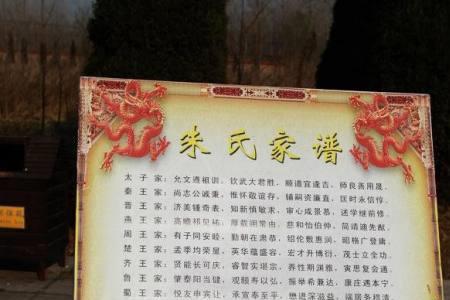 朱氏家谱
太子家：允文遵祖训，钦武大君胜，顺道宜逢吉，师良善用晟。
秦王家：尚志公诚秉，惟怀敬谊存，辅嗣资廉直，匡时永信惇。
晋王家：济美钟奇表，知新慎敏求，审心咸景慕，述学继前修。
燕王家：高瞻祁见祐，厚载翊常由，慈和怡伯仲，简靖迪先猷。
周王家：有子同安睦，勤朝在肃恭，绍伦敷惠润，昭格广登庸。
楚王家：孟季均荣显，英华蕴盛容，宏才升博衍，茂士立全功。
齐王家：贤能长可庆，睿智实堪宗，养性期渊雅，寅思复会通。
鲁王家：肇泰阳当健，观颐寿以弘，振举希兼达，康庄遇本宁，
蜀王家：悦友申宾让，承宣奉至平，懋进深滋益，端居务穆清